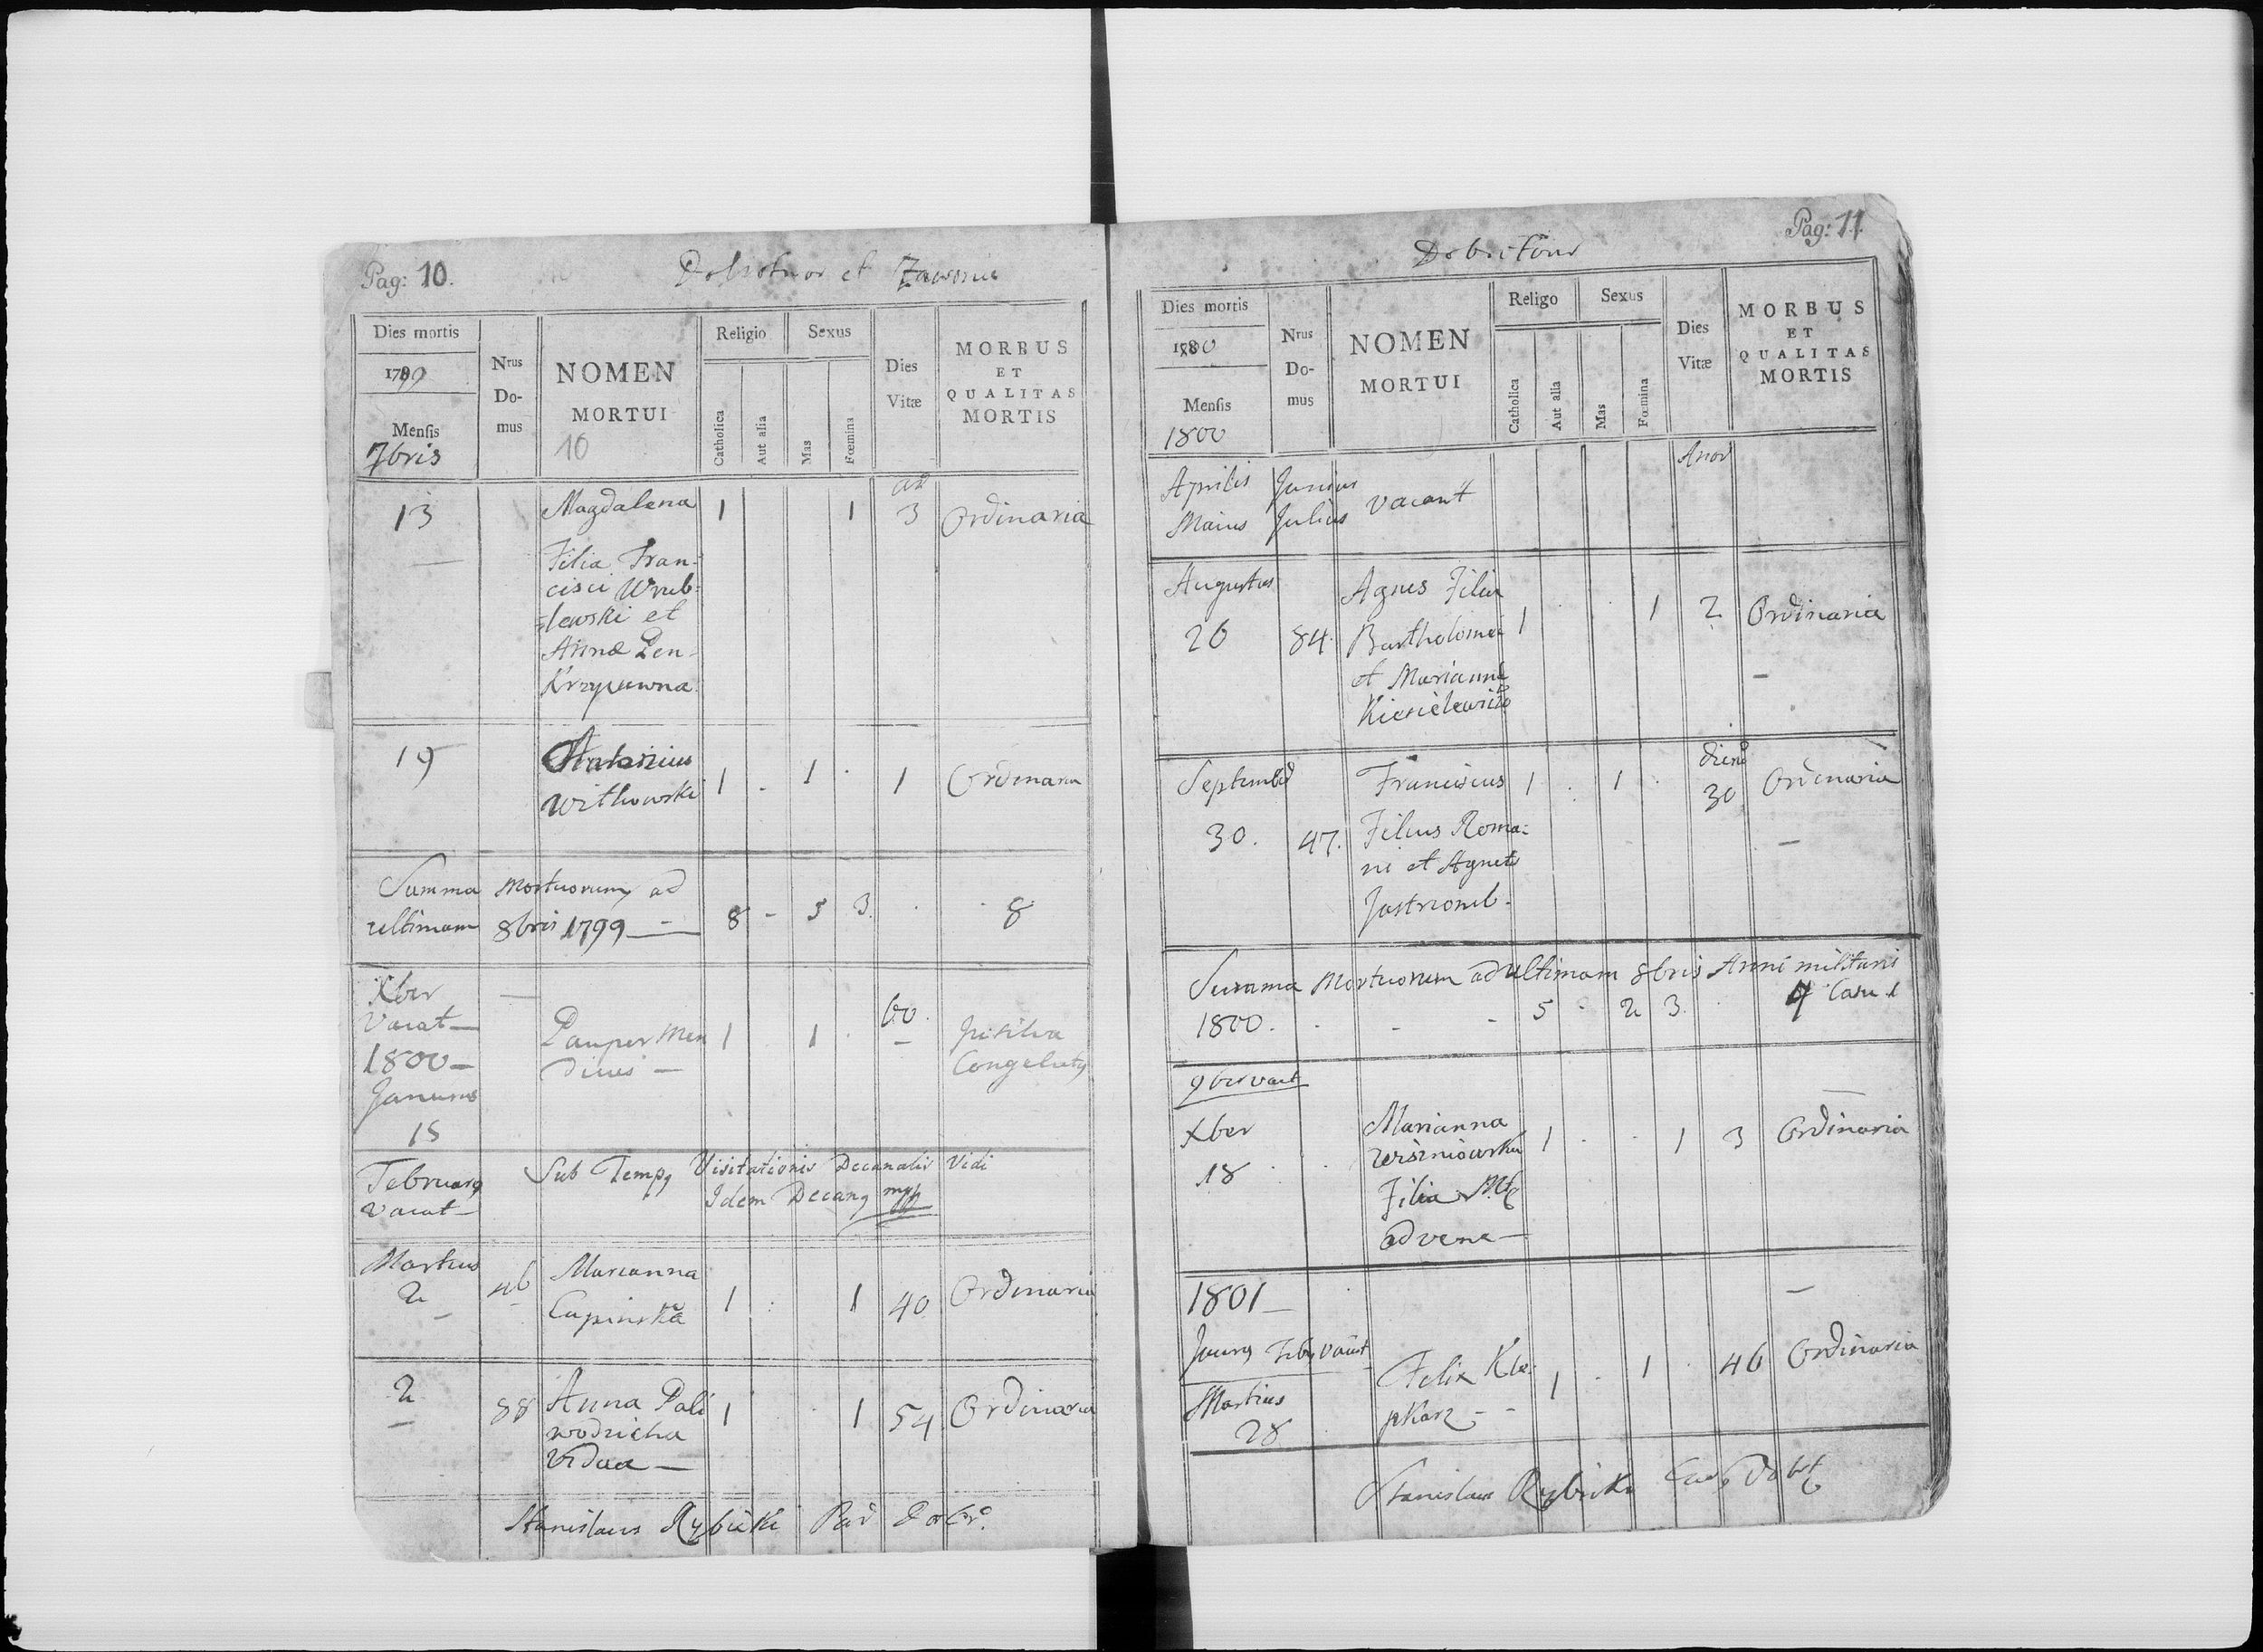 Pag: 10.
Dobrotwor et Zawonie
Dies mortis
1799
Mensis
7bris
Nrus
Do-
mus
NOMEN
MORTUI
10
Religio
Catholica
Aut alia
Sexus
Mas
Fœmina
Dies
Vitæ
MORBUS
ET
QUALITAS
MORTIS
13 Magdalena 1 1 3 Ordinaria
Filia Fran-
cisci Wrub-
lewski et
Annæ Pen-
Krzycuwna
19 Antonius
Witkowski 1 - 1 . 1 Ordinaria
Summa Mortuorum ad
ultimam 8bris 1799 — 8 - 5 3. 8
Xber
Vacat —
1800 —
Januarius
15
Pauper Men
dicus — 1 1 60. in silva
Congelatus
Februarius
vacat —
Sub Temp. Visitationis Decanalis Vidi
Idem Decanus mpp
Martius
2 46 Marianna
Cupinska 1 1 40 Ordinaria
2 88 Anna Pali
wodzicha
Vidua — 1 1 54 Ordinaria
Stanislaus Rybicki
Pag: 11.
Dies mortis
1800
Mensis
1800
Nrus
Do-
mus
NOMEN
MORTUI
Religo
Catholica
Aut alia
Sexus
Mas
Fœmina
Dies
Vitæ
MORBUS
ET
QUALITAS
MORTIS
Aprilis Junius
Maius Julius vacant
Augustus
26 84. Agnes Filia
Bartholomei 1 1 2 Ordinaria
et Marianna
Kisielewicz
30. 47. Franciscus 1 . 1 . 30 Ordinaria
Filius Roma-
ni et Agnet
Jastrzomb.
Summa Mortuorum ad ultimam 8bris Anni militaris
1800. - - - 5 - 2 3. 4 Casu 1
9ber vacat
Xber
18
Marianna
Wiszniowska 1 . . 1 3 Ordinaria
Filia
advenæ —
1801 —
Martius
28
Felix Kle-
pkarz - - 1 - 1 . 46 Ordinaria
Stanislaus Rybicki